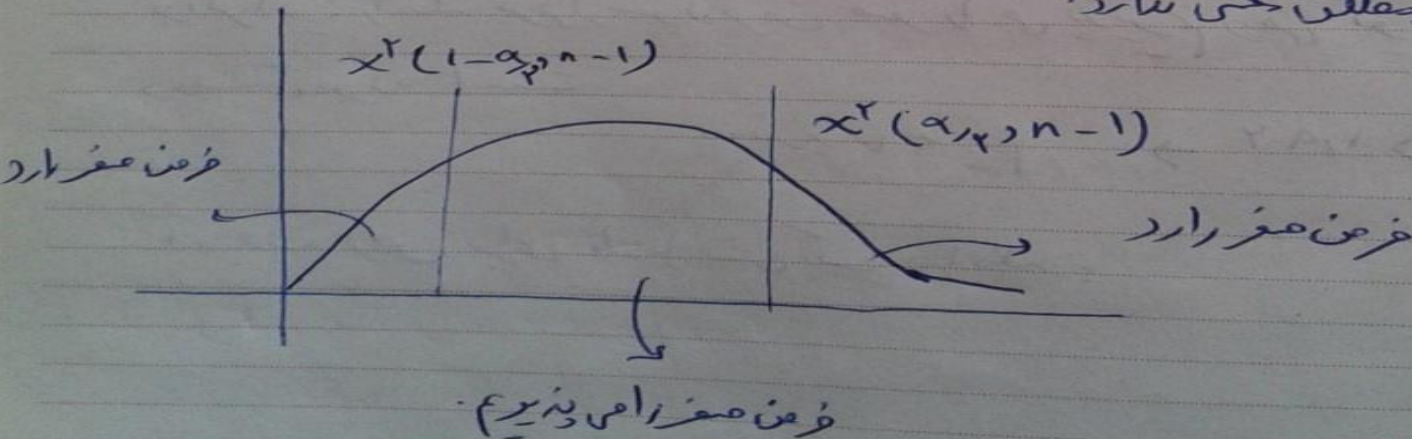 x²(1-α/۲, n-1)
x²(α/۲, n-1)
فرض صفر را رد
فرض صفر را رد
فرض صفر را می پذیریم.